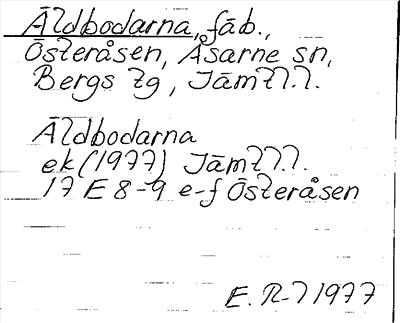 Äldbodarna, fäb.,
Österåsen, Åsarne sn,
Bergs tg, Jämtl.
Äldbodarna
ek (1977) Jämtl.
17 E 8-9 e-f Österåsen
E. R-7 1977